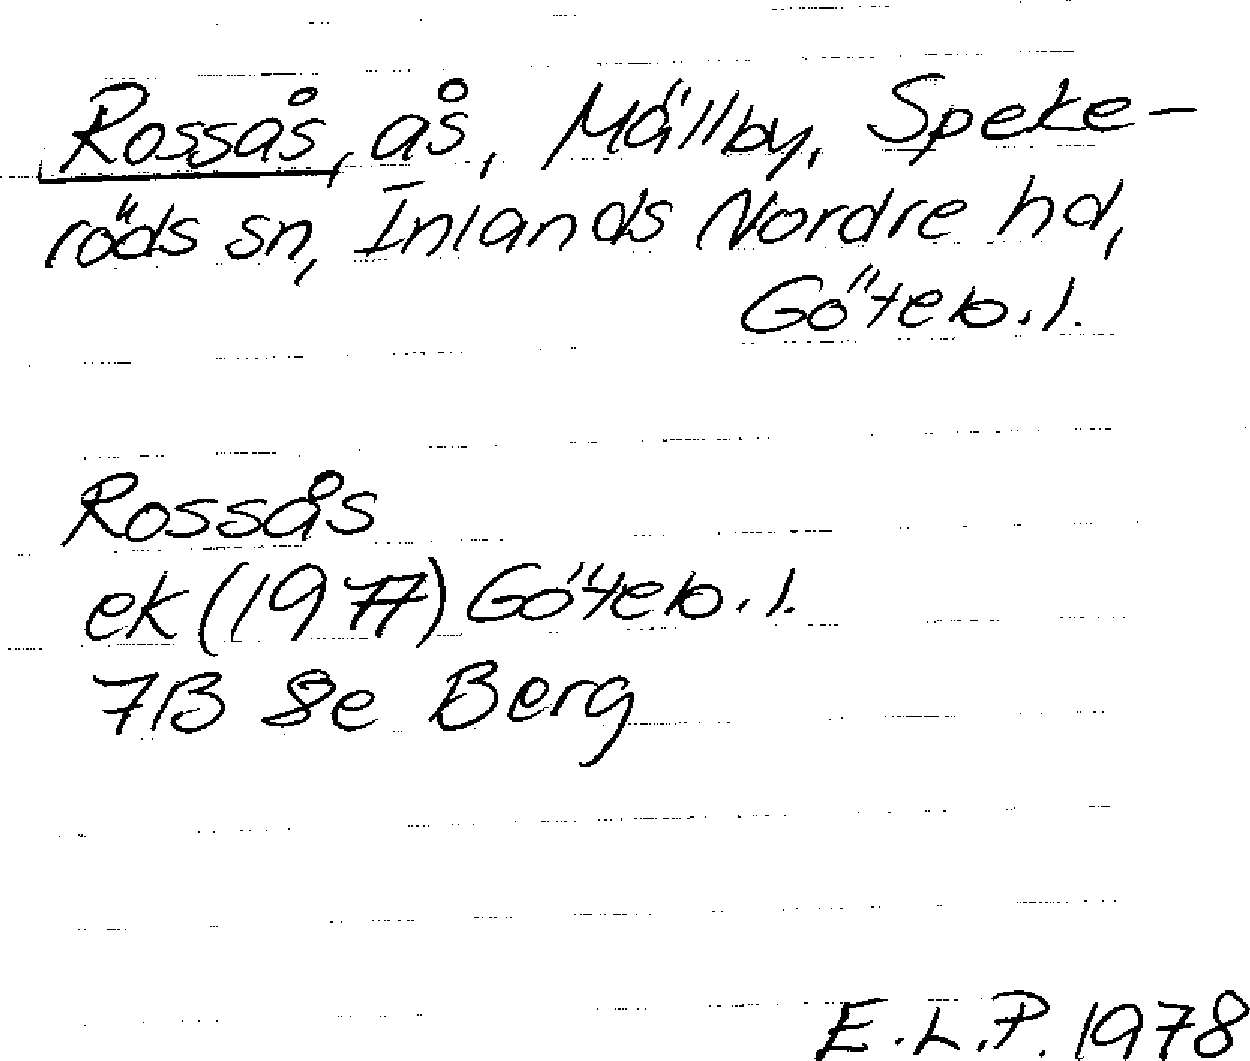 Rossås, ås, Mällby, Speke-
röds sn, Inlands Nordre hd,
Göteb. l.
Rossås
ek (1977) Göteb. l.
7B 8e Berg
E.L.P. 1978